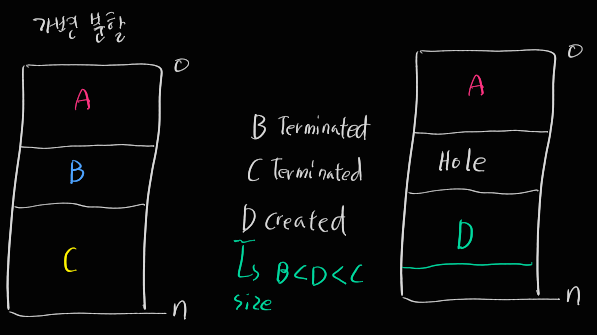 가변 분할
0
A
B
C
n
B Terminated
C Terminated
D created
B<D<C
size
0
A
Hole
D
n